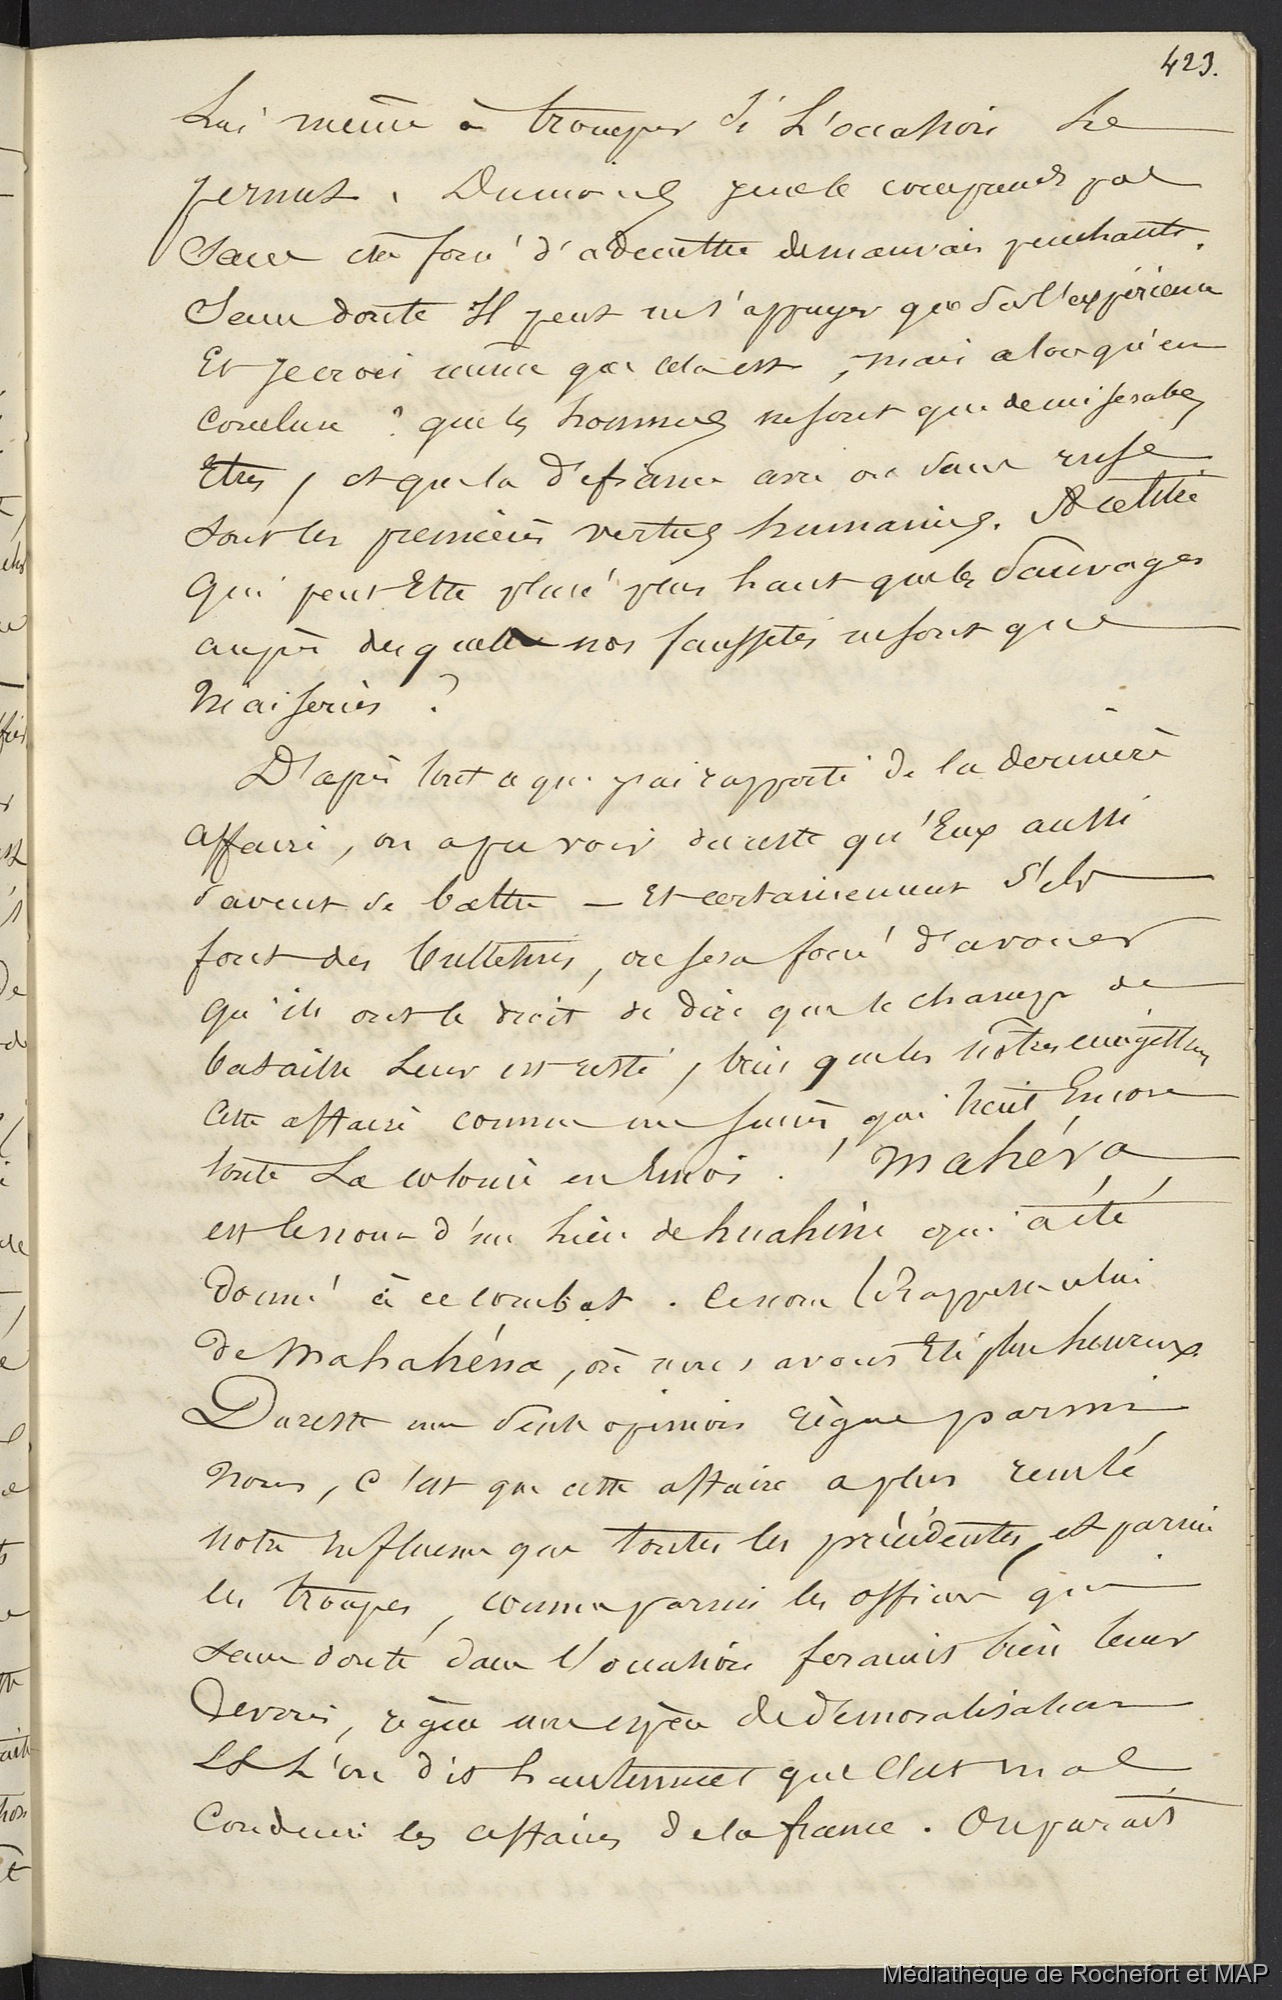 423.
Lui même à tromper si L'occasion Le
permet. Du moins quel comprend pas
Sans être forcé d'admettre de mauvais penchants.
Sans doute Il peut ne s'appuyer que sur l'expérience
Et je crois même que cela est, mais alors qu'en
Conclure ? que les hommes ne sont que de miserables
Etres, et que la défiance avec ou sans ruse
sont les premières vertus humaines. A ce titre
Qui peut Etre placé plus haut que les Sauvages
auprès desquels nos faussetés ne sont que
Niaiseries ?
D'après tout ce que j'ai rapporté de la dernière
affaire, on a pu voir du reste qu'Eux aussi
savent se battre – Et certainement s'ils
font des bulletins, on sera forcé d'avouer
Qu'ils ont le droit de dire que le champ de
bataille Leur est resté, bien que les nôtres
Cette affaire comme un succès qui tient Encore
toute La colonie en Emoi. Mahéva
est le nom d'un lieu de huahine qui a été
Donné à ce combat. Ce nom Rappelle celui
de Mahahéna, où nous avons Eté plus heureux
Du reste une seule opinion règne parmi
Nous, c'est que cette affaire a plus reculé
notre influence que toutes les précédentes, et parmi
les troupes, comme parmi les officiers qui
sans doute dans l'occasion feraient bien leur
Devoir, règne une espèce de démoralisation
Et L'on dit hautement que c'est mal
Conduire les affaires de la france. On paraît
Médiathèque de Rochefort et MAP